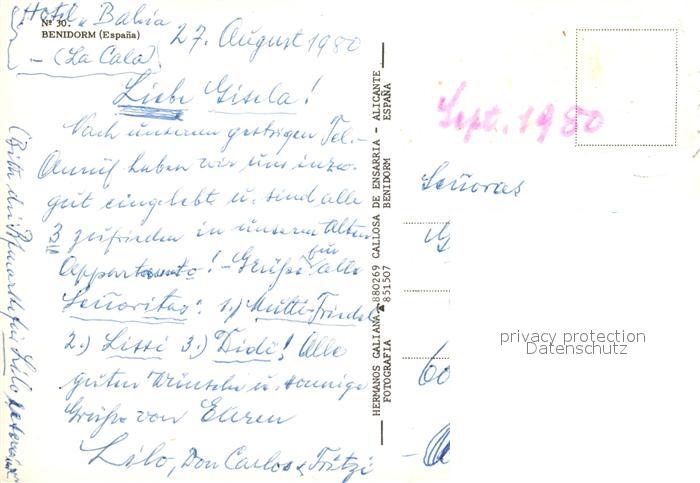 Hotel Bahia
Nº 30.
BENIDORM (España)
- (La Cala)
27. August 1980
Liebe Gisela!
Nach unserem gestrigen Tel.-
Anruf haben wir uns inzw.
gut eingelebt u. sind alle
3 zufrieden in unserem alten
Appartamento! - Grüße für alle
Señoritas: 1.) Mutti-Friedel
2.) Lissi 3.) Didi! Alle
guten Wünsche u. sonnige
Grüße von Euren
Lilo, Don Carlos & Fritzi
(Bitte die für Lilo
HERMANOS GALIANA ☎ 880269 CALLOSA DE ENSARRIA - ALICANTE
FOTOGRAFIA 851507 BENIDORM ESPAÑA
Sept. 1980
Señoras
60
privacy protection
Datenschutz